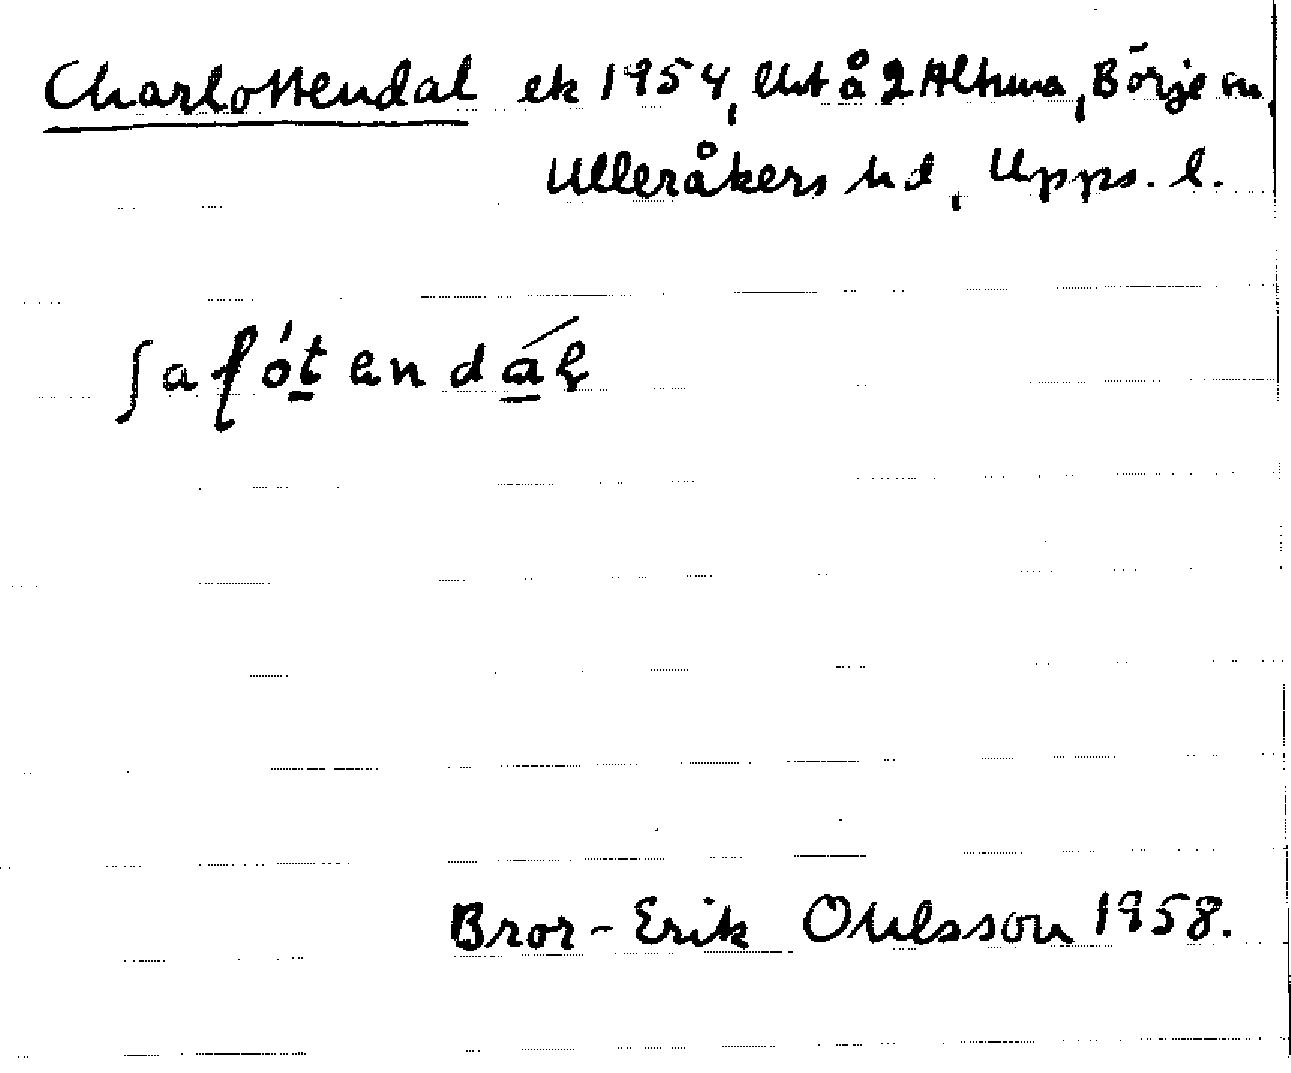 Charlottendal ek 1954, lht å 2 Altuna, Börje sn,
Ulleråkers hd, Upps. l.
Bror-Erik Ohlsson 1958.